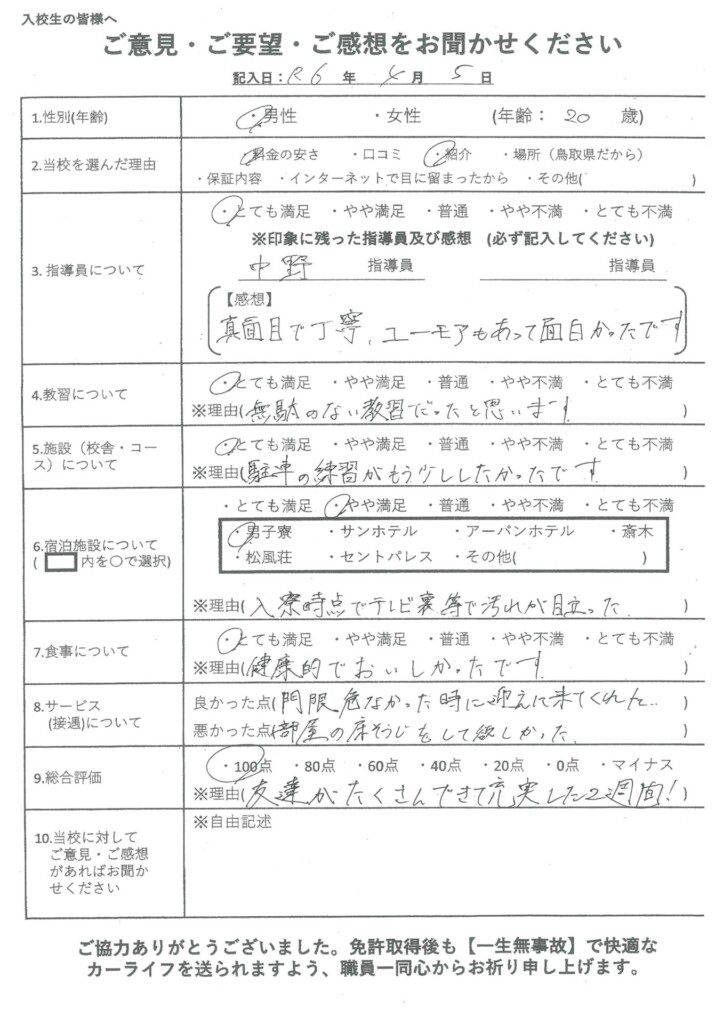 入校生の皆様へ
ご意見・ご要望・ご感想をお聞かせください
記入日：R6 年 4 月 5 日
1.性別(年齢) ・男性 ・女性 (年齢： 20 歳)
2.当校を選んだ理由 ・料金の安さ ・口コミ ・紹介 ・場所（鳥取県だから）
・保証内容 ・インターネットで目に留まったから ・その他( )
3. 指導員について ・とても満足 ・やや満足 ・普通 ・やや不満 ・とても不満
※印象に残った指導員及び感想 (必ず記入してください)
中野 指導員 指導員
【感想】
真面目で丁寧、ユーモアもあって面白かったです
4.教習について ・とても満足 ・やや満足 ・普通 ・やや不満 ・とても不満
※理由(無駄のない教習だったと思います )
5.施設（校舎・コース）について ・とても満足 ・やや満足 ・普通 ・やや不満 ・とても不満
※理由(駐車の練習がもう少ししたかったです )
・とても満足 ・やや満足 ・普通 ・やや不満 ・とても不満
6.宿泊施設について ・男子寮 ・サンホテル ・アーバンホテル ・斎木
( 内を○で選択) ・松風荘 ・セントパレス ・その他( )
※理由(入寮時点でテレビ裏等で汚れが目立った. )
7.食事について ・とても満足 ・やや満足 ・普通 ・やや不満 ・とても不満
※理由(健康的でおいしかったです )
8.サービス 良かった点(門限危なかった時に迎えに来てくれた.. )
(接遇)について 悪かった点(部屋の床そうじをして欲しかった. )
9.総合評価 ・100点 ・80点 ・60点 ・40点 ・20点 ・0点 ・マイナス
※理由(友達がたくさんできて充実した2週間! )
10.当校に対して ※自由記述
ご意見・ご感想
があればお聞か
せください
ご協力ありがとうございました。免許取得後も【一生無事故】で快適な
カーライフを送られますよう、職員一同心からお祈り申し上げます。